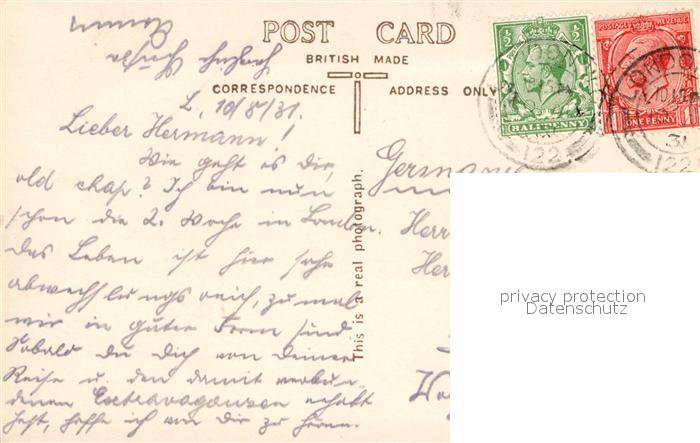 POST CARD
BRITISH MADE
CORRESPONDENCE
ADDRESS ONLY
L, 10/8/31.
Lieber Hermann!
Wie geht es dir,
old chap? Ich bin nun
schon die 2. Woche in London.
Das Leben ist hier sehr
abwechslungsreich, zumal
wir in guter Form sind
Sobald du dich von deiner
Reise u. den damit verbun
denen Extravaganzen erholt
hast, hoffe ich von Dir zu hören.
This is a real photograph.
Germany
Herrn
He
½ ½
HALFPENNY
POSTAGE REVENUE
ONE PENNY 1
LONDON
31
122
122
privacy protection
Datenschutz